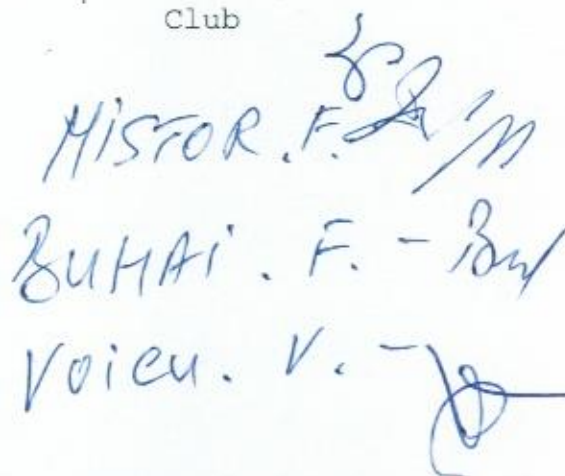 Club
MISTOR. F.
BUHAI. F. -
VOICU. V. -